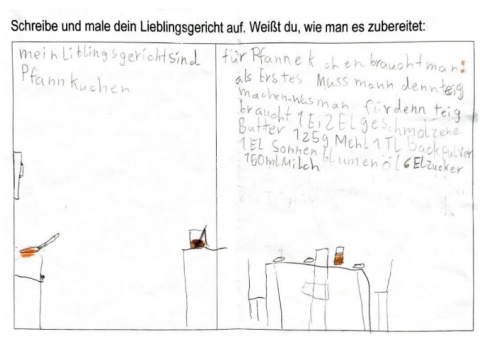 Schreibe und male dein Lieblingsgericht auf. Weißt du, wie man es zubereitet:
mein Liblingsgericht sind
Pfannkuchen
für Pfannek chen braucht man:
als Erstes Muss mann denn teig
machen. Was man für denn teig
braucht 1 Ei 2 EL geschmolzene
Butter 125g Mehl 1 TL Backpulver
1 EL Sonnenblumenöl 6 El Zucker
150ml Milch